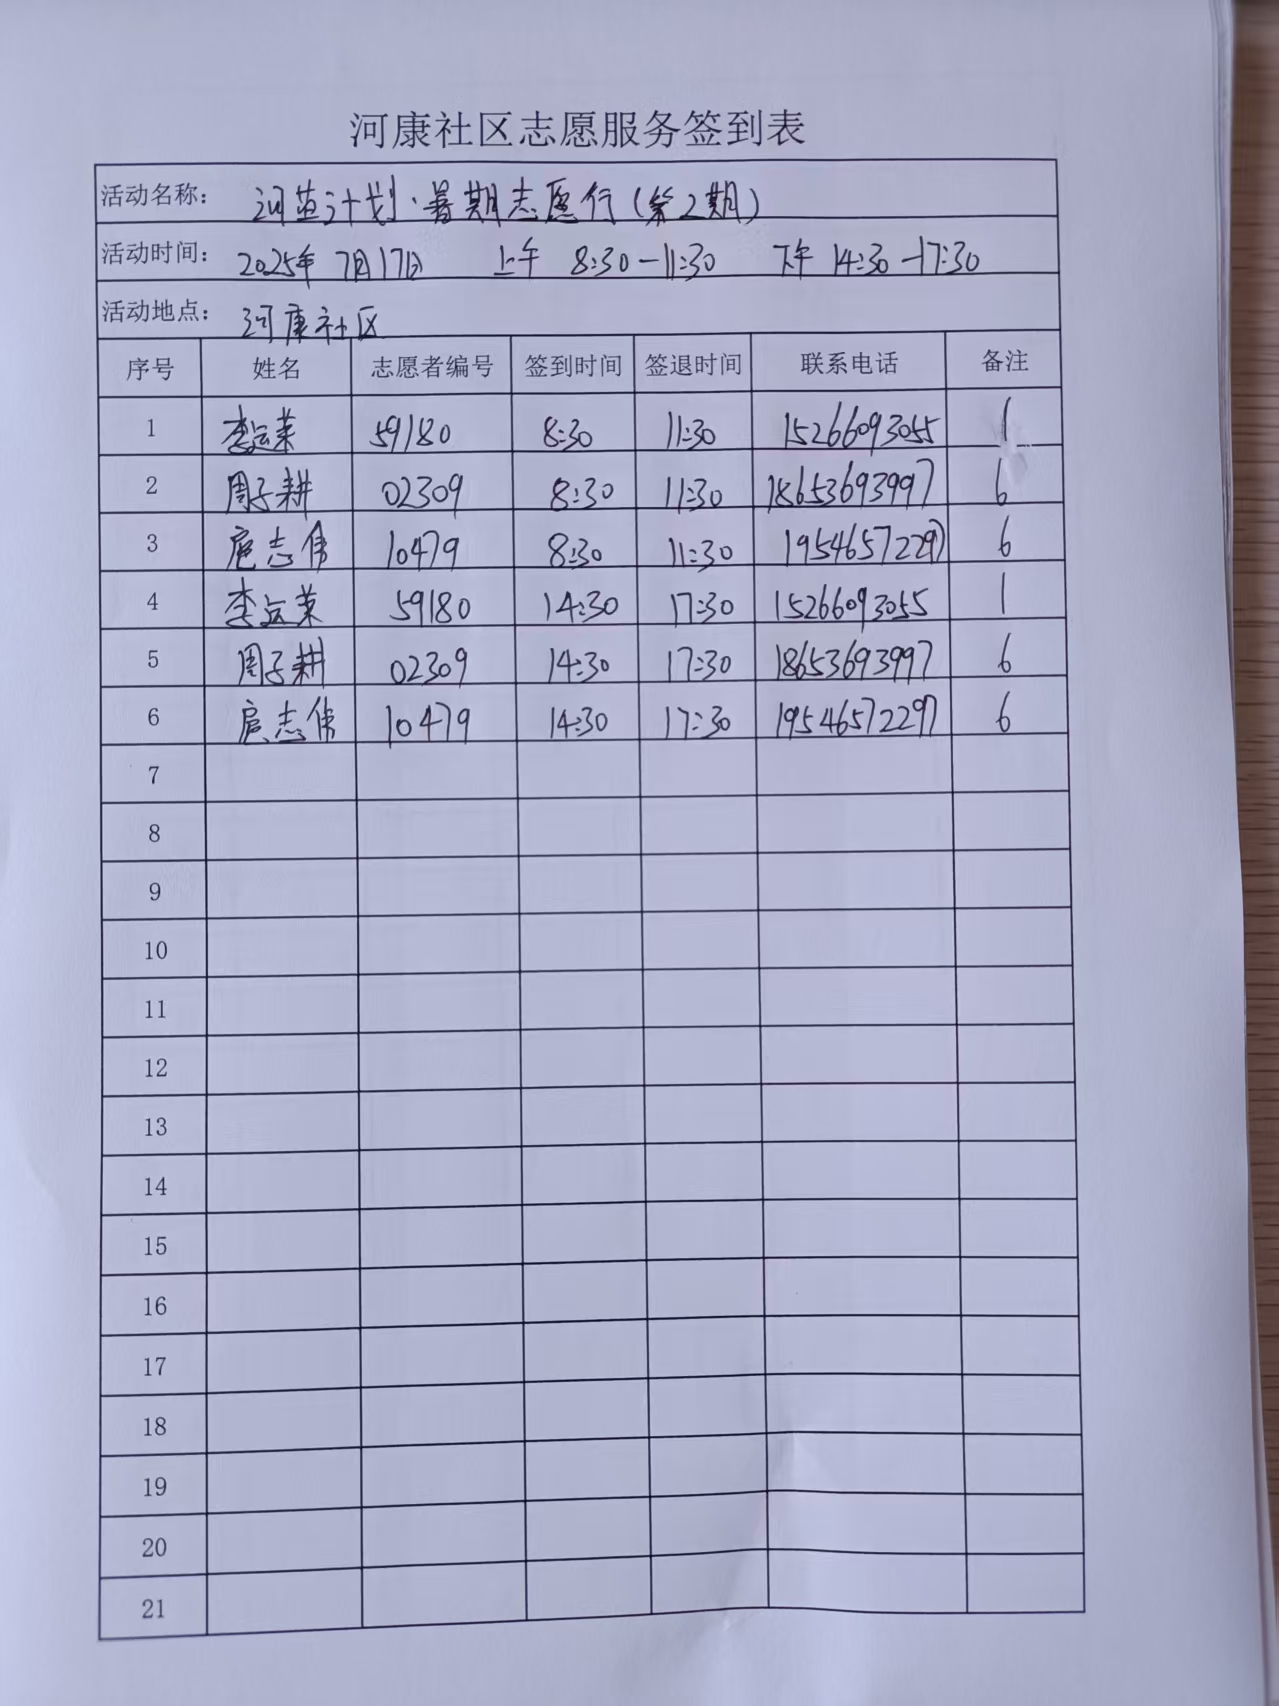 河康社区志愿服务签到表
活动名称： 河苗计划·暑期志愿行（第2期）
活动时间： 2025年7月17日 上午 8:30-11:30 下午 14:30-17:30
活动地点： 河康社区
序号 姓名 志愿者编号 签到时间 签退时间 联系电话 备注
1 李运荣 59180 8:30 11:30 15266093055 1
2 周子耕 02309 8:30 11:30 18653693997 6
3 扈志伟 10479 8:30 11:30 19546572297 6
4 李运荣 59180 14:30 17:30 15266093055 1
5 周子耕 02309 14:30 17:30 18653693997 6
6 扈志伟 10479 14:30 17:30 19546572297 6
7
8
9
10
11
12
13
14
15
16
17
18
19
20
21